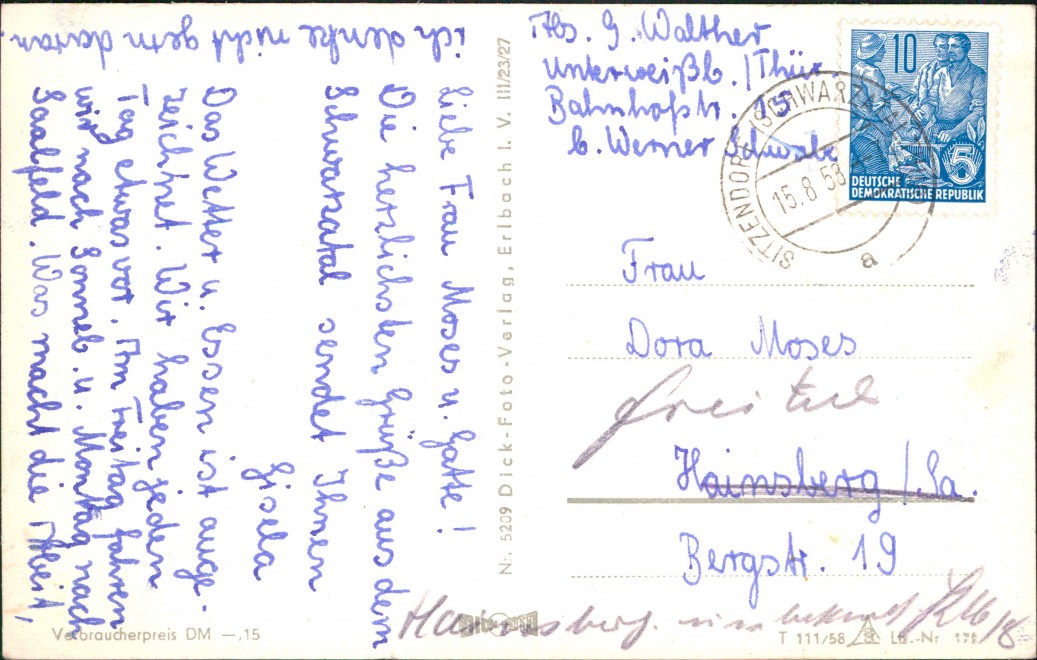 Liebe Frau Moses u. Gatte!
Die herzlichsten Grüße aus dem
Schwarzatal sendet Ihnen
Gisela
Das Wetter u. Essen ist ausge-
zeichnet. Wir haben jeden
Tag etwas vor. Am Freitag fahren
wir nach Sonneb. u. Montag nach
Saalfeld. Was macht die Arbeit,
ich denke nicht gern daran.
Nr. 5209 Dick-Foto-Verlag, Erlbach i. V. III/23/27
Abs. G. Walther
Unterweißb./Thür.
Bahnhofstr. 15
b. Werner Schwabe
10
5
DEUTSCHE
DEMOKRATISCHE REPUBLIK
SITZENDORF (SCHWARZATAL)
15.8.58
a
Frau
Dora Moses
Freital
Hainsberg/Sa.
Bergstr. 19
Hainsberg unbekannt
Verbraucherpreis DM —,15
T 111/58 Liz.-Nr